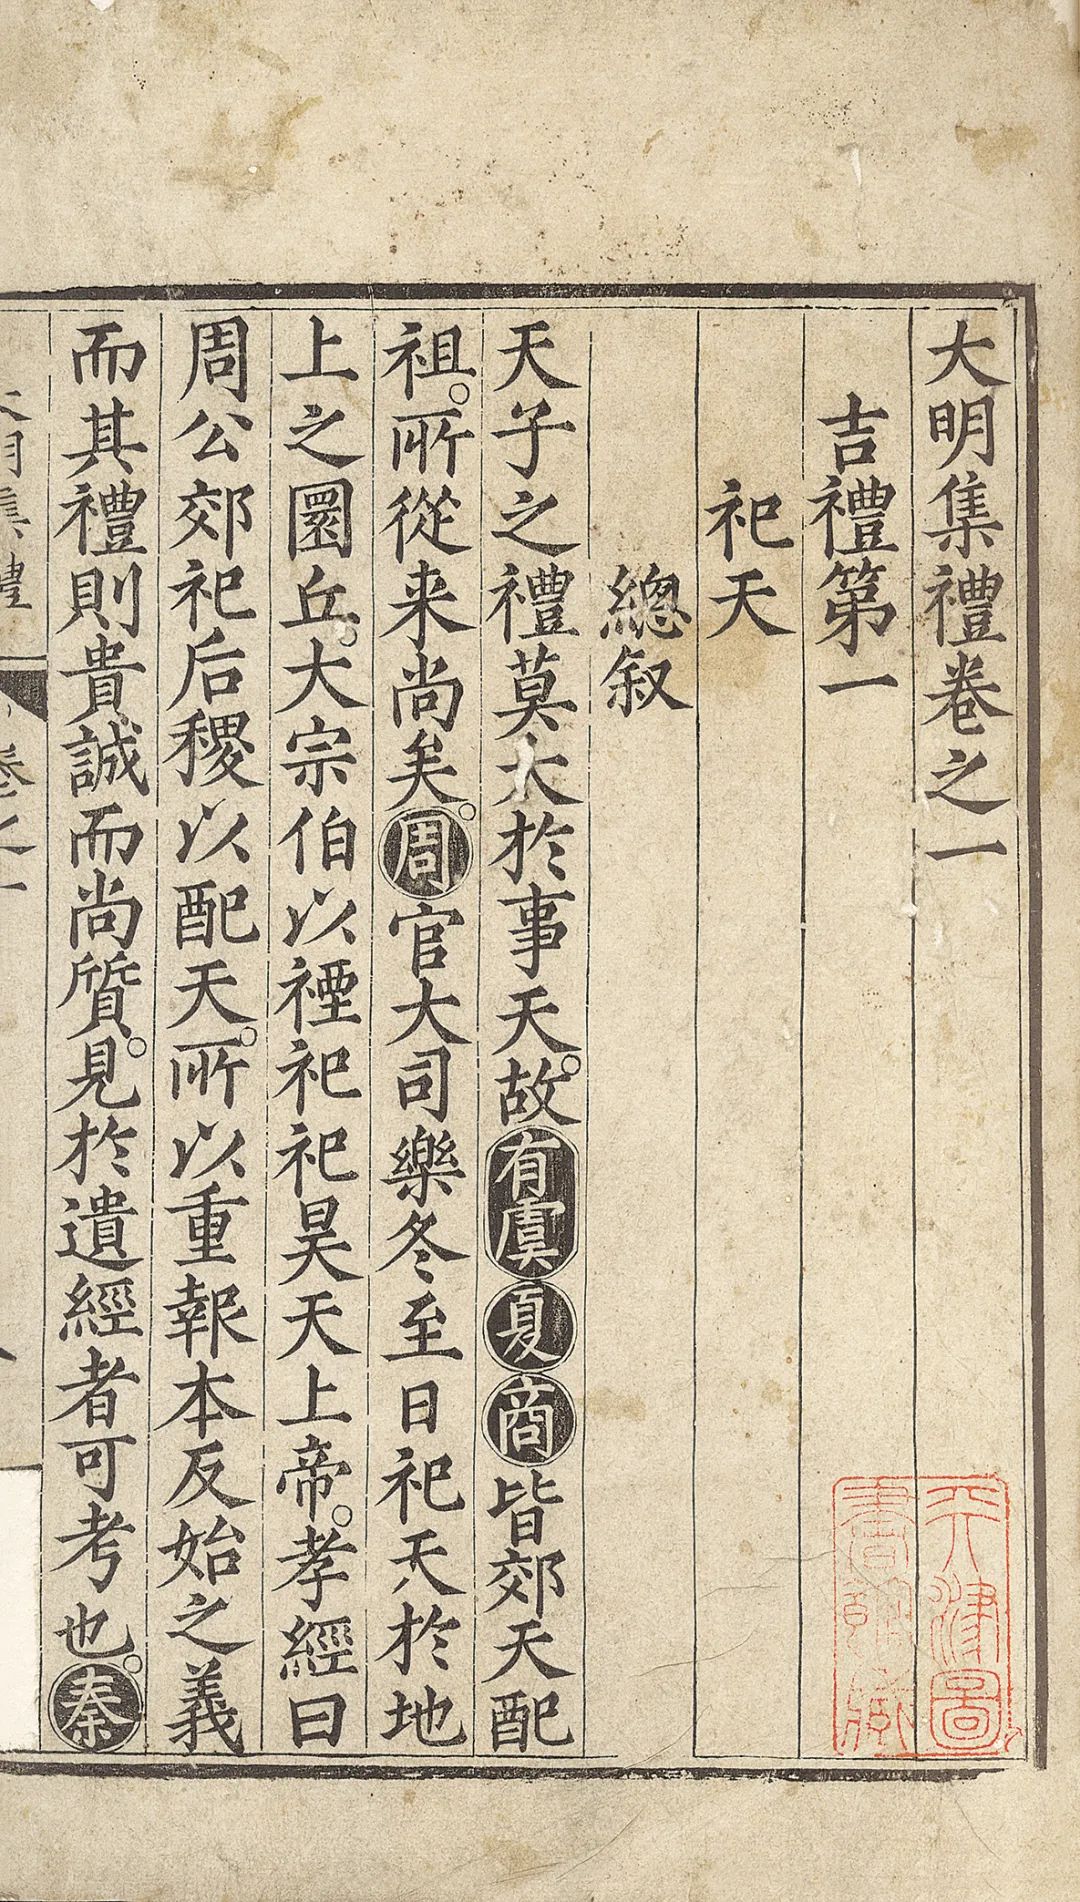 大明集禮卷之一
吉禮第一
祀天
總叙
天子之禮莫大於事天。故有虞夏商皆郊天配
祖。所從来尚矣。周官大司樂冬至日祀天於地
上之圜丘。大宗伯以禋祀祀昊天上帝。孝經曰
周公郊祀后稷以配天。所以重報本反始之義
而其禮則貴誠而尚質。見於遺經者可考也。秦
天津圖
書館藏